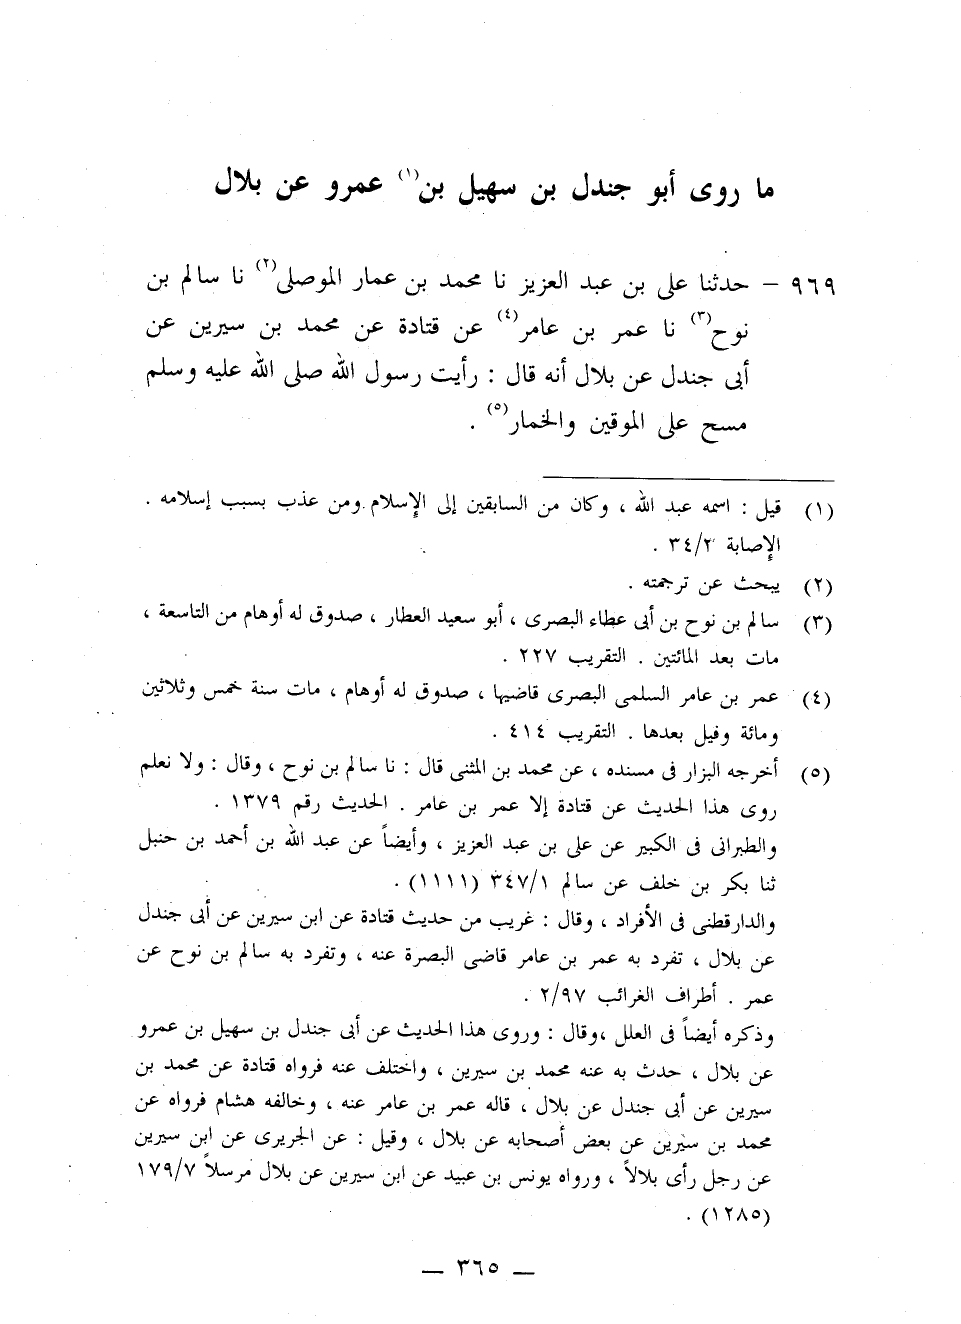 ما روى أبو جندل بن سهيل بن(١) عمرو عن بلال
٩٦٩ – حدثنا على بن عبد العزيز نا محمد بن عمار الموصلى(٢) نا سالم بن
نوح(٣) نا عمر بن عامر(٤) عن قتادة عن محمد بن سيرين عن
أبى جندل عن بلال أنه قال : رأيت رسول الله صلى الله عليه وسلم
مسح على الموقين والخمار(٥) .
(١) قيل : اسمه عبد الله ، وكان من السابقين إلى الإسلام ومن عذب بسبب إسلامه .
الإصابة ٣٤/٢ .
(٢) يبحث عن ترجمته .
(٣) سالم بن نوح بن أبى عطاء البصرى ، أبو سعيد العطار ، صدوق له أوهام من التاسعة ،
مات بعد المائتين . التقريب ٢٢٧ .
(٤) عمر بن عامر السلمى البصرى قاضيها ، صدوق له أوهام ، مات سنة خمس وثلاثين
ومائة وفيل بعدها . التقريب ٤١٤ .
(٥) أخرجه البزار فى مسنده ، عن محمد بن المثنى قال : نا سالم بن نوح ، وقال : ولا نعلم
روى هذا الحديث عن قتادة إلا عمر بن عامر . الحديث رقم ١٣٧٩ .
والطبرانى فى الكبير عن على بن عبد العزيز ، وأيضاً عن عبد الله بن أحمد بن حنبل
ثنا بكر بن خلف عن سالم ٣٤٧/١ (١١١١) .
والدارقطنى فى الأفراد ، وقال : غريب من حديث قتادة عن ابن سيرين عن أبى جندل
عن بلال ، تفرد به عمر بن عامر قاضى البصرة عنه ، وتفرد به سالم بن نوح عن
عمر . أطراف الغرائب ٢/٩٧ .
وذكره أيضاً فى العلل ،وقال : وروى هذا الحديث عن أبى جندل بن سهيل بن عمرو
عن بلال ، حدث به عنه محمد بن سيرين ، واختلف عنه فرواه قتادة عن محمد بن
سيرين عن أبى جندل عن بلال ، قاله عمر بن عامر عنه ، وخالفه هشام فرواه عن
محمد بن سيرين عن بعض أصحابه عن بلال ، وقيل : عن الجريرى عن ابن سيرين
عن رجل رأى بلالاً ، ورواه يونس بن عبيد عن ابن سيرين عن بلال مرسلاً ١٧٩/٧
(١٢٨٥) .
— ٣٦٥ —